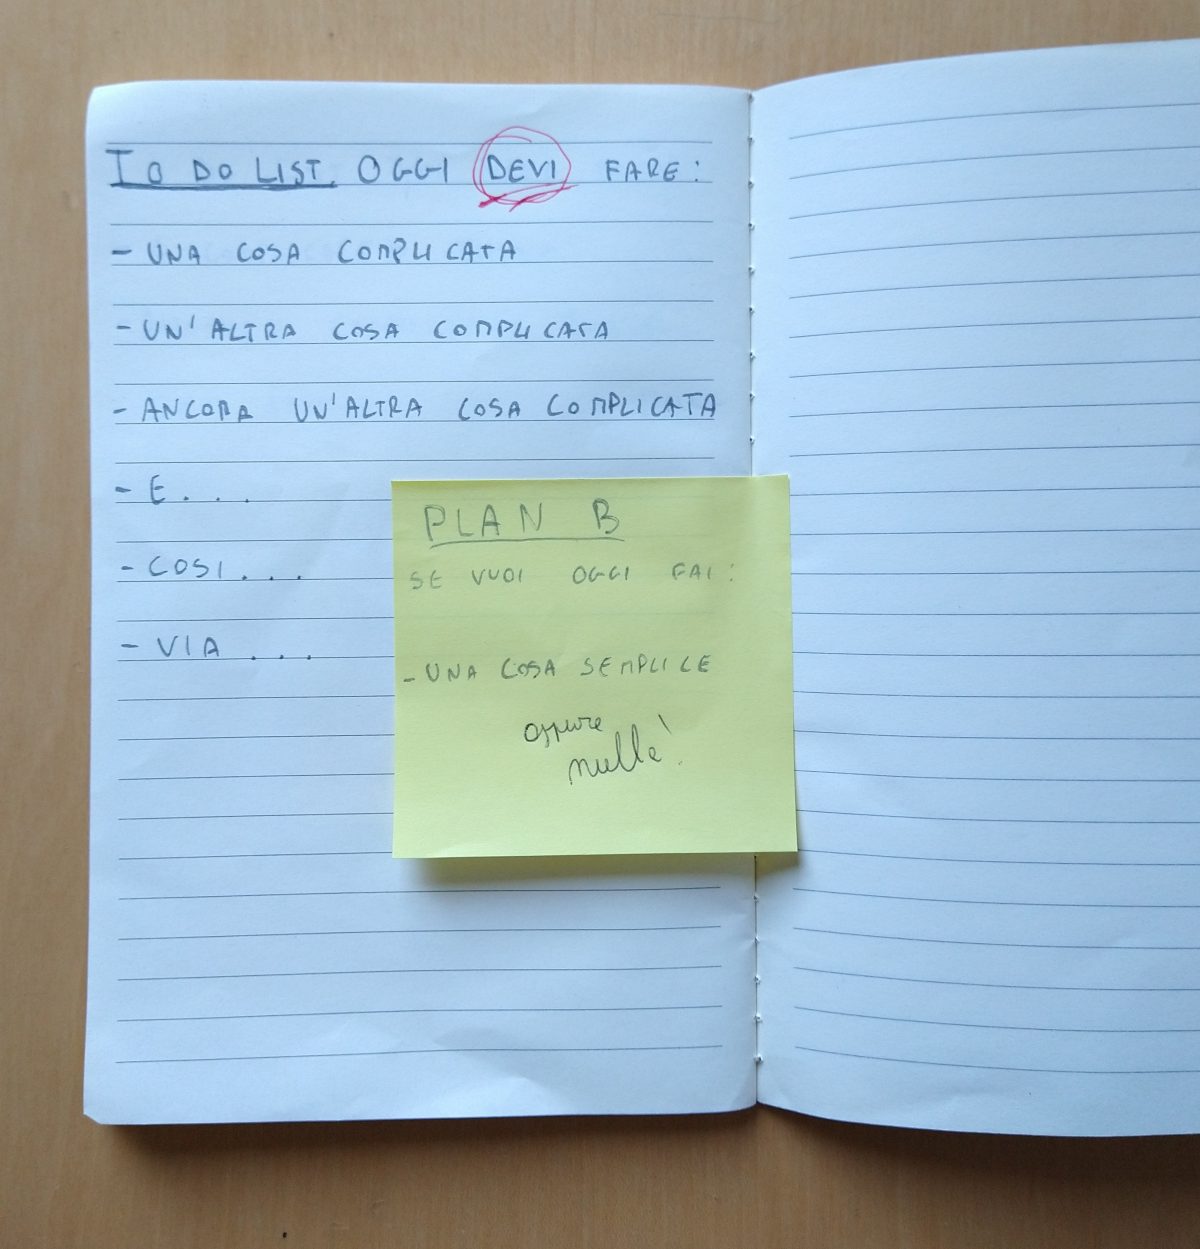 TO DO LIST. OGGI DEVI FARE:
- UNA COSA COMPLICATA
- UN'ALTRA COSA COMPLICATA
- ANCORA UN'ALTRA COSA COMPLICATA
- E...
- COSI...
- VIA...
PLAN B
SE VUOI OGGI FAI:
- UNA COSA SEMPLICE
oppure
nulla!